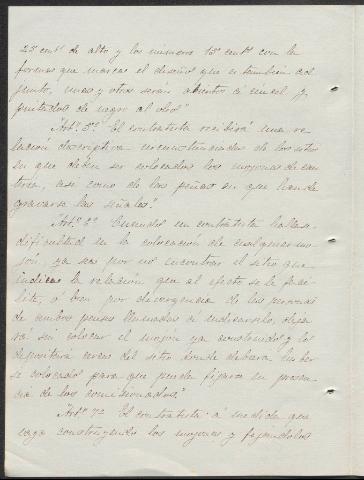 25 cent.s de alto y los mismos 15 cent.s con la
forma que marca el diseño que es tambien ad-
junto, unas y otras serán abiertos á cincel y
pintados de negro al oleo"
"Art.o 5.o El contratista recibirá una re-
lacion descriptiva circunstanciada de los sitios
en que deben ser colocados los mojones de can-
tería, asi como de las peñas en que han de
gravarse las señales."
"Art.o 6.o Cuando un contratista hallase
dificultad en la colocacion de cualquier mo-
jon, ya sea por no encontrar el sitio que
indica la relación que al efecto se le faci-
lite, ó bien por divergencia de los
de ambos paises llamados á indicarselo, deja-
rá sin colocar el mojón ya construido y lo
depositará cerca del sitio donde debiera haber-
se colocado para que pueda fijarse en presen-
cia de los comisionados."
"Art.o 7.o El contratista á medida que
vaya construyendo los mojones y fijandolos